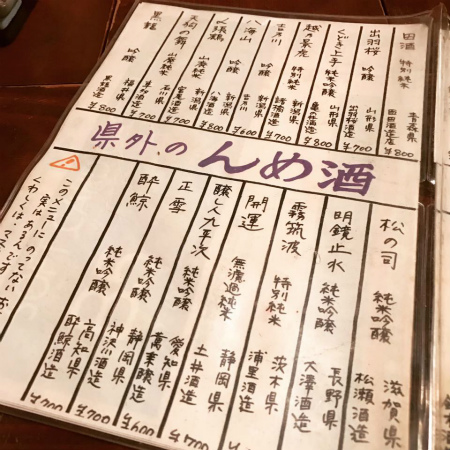 田酒 特別純米 青森県 西田酒造店 ¥800
出羽桜 吟醸 山形県 出羽桜酒造 ¥700
くどき上手 純米吟醸 山形県 亀の井酒造 ¥800
越の景虎 特別純米 新潟県 諸橋酒造 ¥700
吉乃川 吟醸 新潟県 吉乃川 ¥600
八海山 吟醸 新潟県 八海酒造 ¥800
〆張鶴 新潟県 宮尾酒造 ¥700
天狗の舞 山廃純米 石川県 車多酒造 ¥700
黒龍 吟醸 福井県 ¥800
県外のんめ酒
松の司 純米吟醸 滋賀県 松瀬酒造
明鏡止水 純米吟醸 長野県 大澤酒造
霧筑波 特別純米 茨木県 浦里酒造
開運 無濾過純米 静岡県 土井酒造
醸し人九平次 純米吟醸 愛知県 萬乗醸造 ¥700
正雪 純米吟醸 静岡県 神沢川酒造 ¥600
酔鯨 純米吟醸 高知県 酔鯨酒造 ¥700
このメニューにのってない
実はあるんです
くわしくは、マス